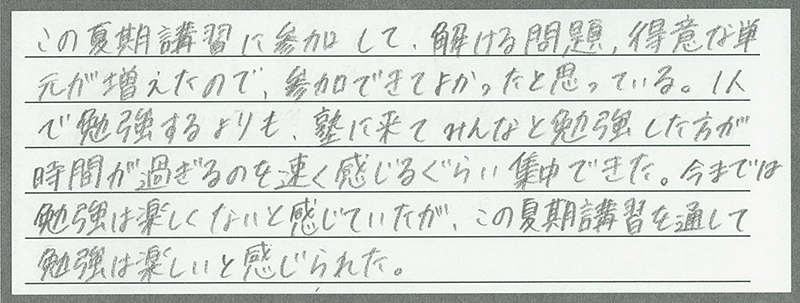 この夏期講習に参加して、解ける問題、得意な単
元が増えたので、参加できてよかったと思っている。1人
で勉強するよりも、塾に来てみんなと勉強した方が
時間が過ぎるのを速く感じるぐらい集中できた。今までは
勉強は楽しくないと感じていたが、この夏期講習を通して
勉強は楽しいと感じられた。